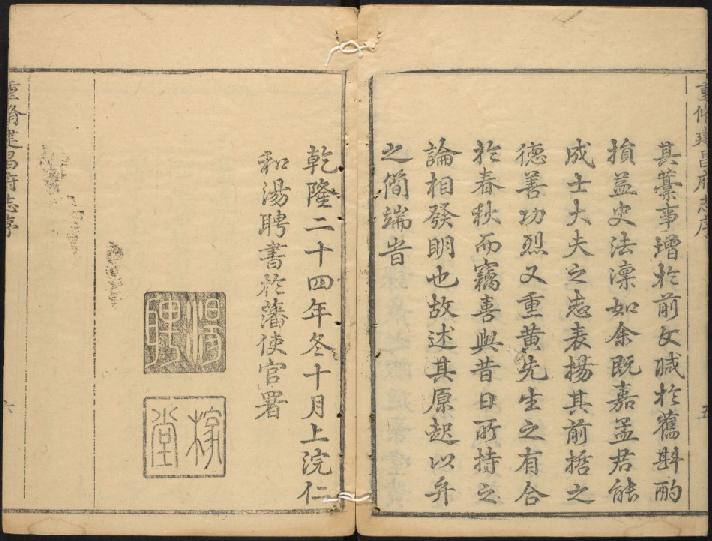 重脩建昌府志序
其藁事增於前文減於舊斟酌
損益史法凜如余既嘉孟君能
成士大夫之志表揚其前哲之
德善功烈又重黄先生之有合
於春秋而竊喜與昔日所持之
論相發明也故述其原起以弁
之簡端旹
五
乾隆二十四年冬十月上浣仁
和湯聘書於藩使官署
湯聘
稼堂
重脩建昌府志序
六